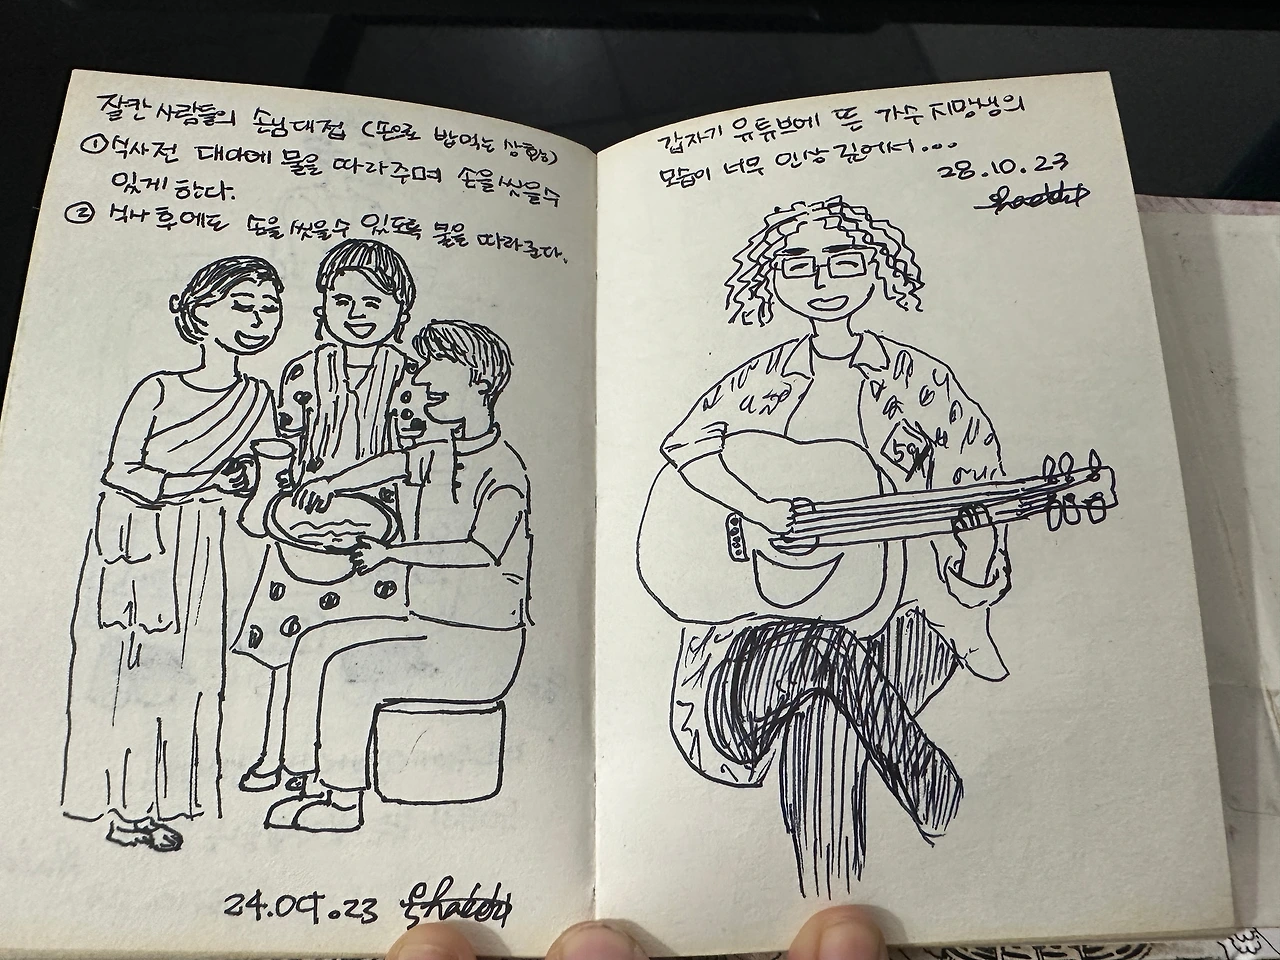 잘칸 사람들의 손님대접 (손으로 밥먹는 상황)
① 식사전 대야에 물을 따라주며 손을 씻을수
있게 한다.
② 식사 후에도 손을 씻을수 있도록 물을 따라준다.
24.Oct.23
갑자기 유튜브에 뜬 가수 지망생의
모습이 너무 인상 깊어서...
28.10.23